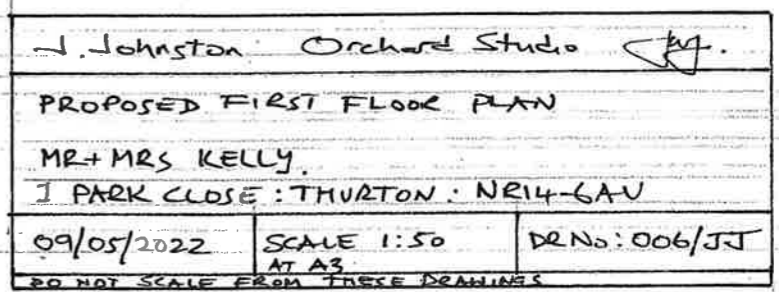 J. Johnston Orchard Studio
PROPOSED FIRST FLOOR PLAN
MR+MRS KELLY.
1 PARK CLOSE : THURTON : NR14-6AU
09/05/2022
SCALE 1:50
AT A3
DR No: 006/JJ
DO NOT SCALE FROM THESE DRAWINGS